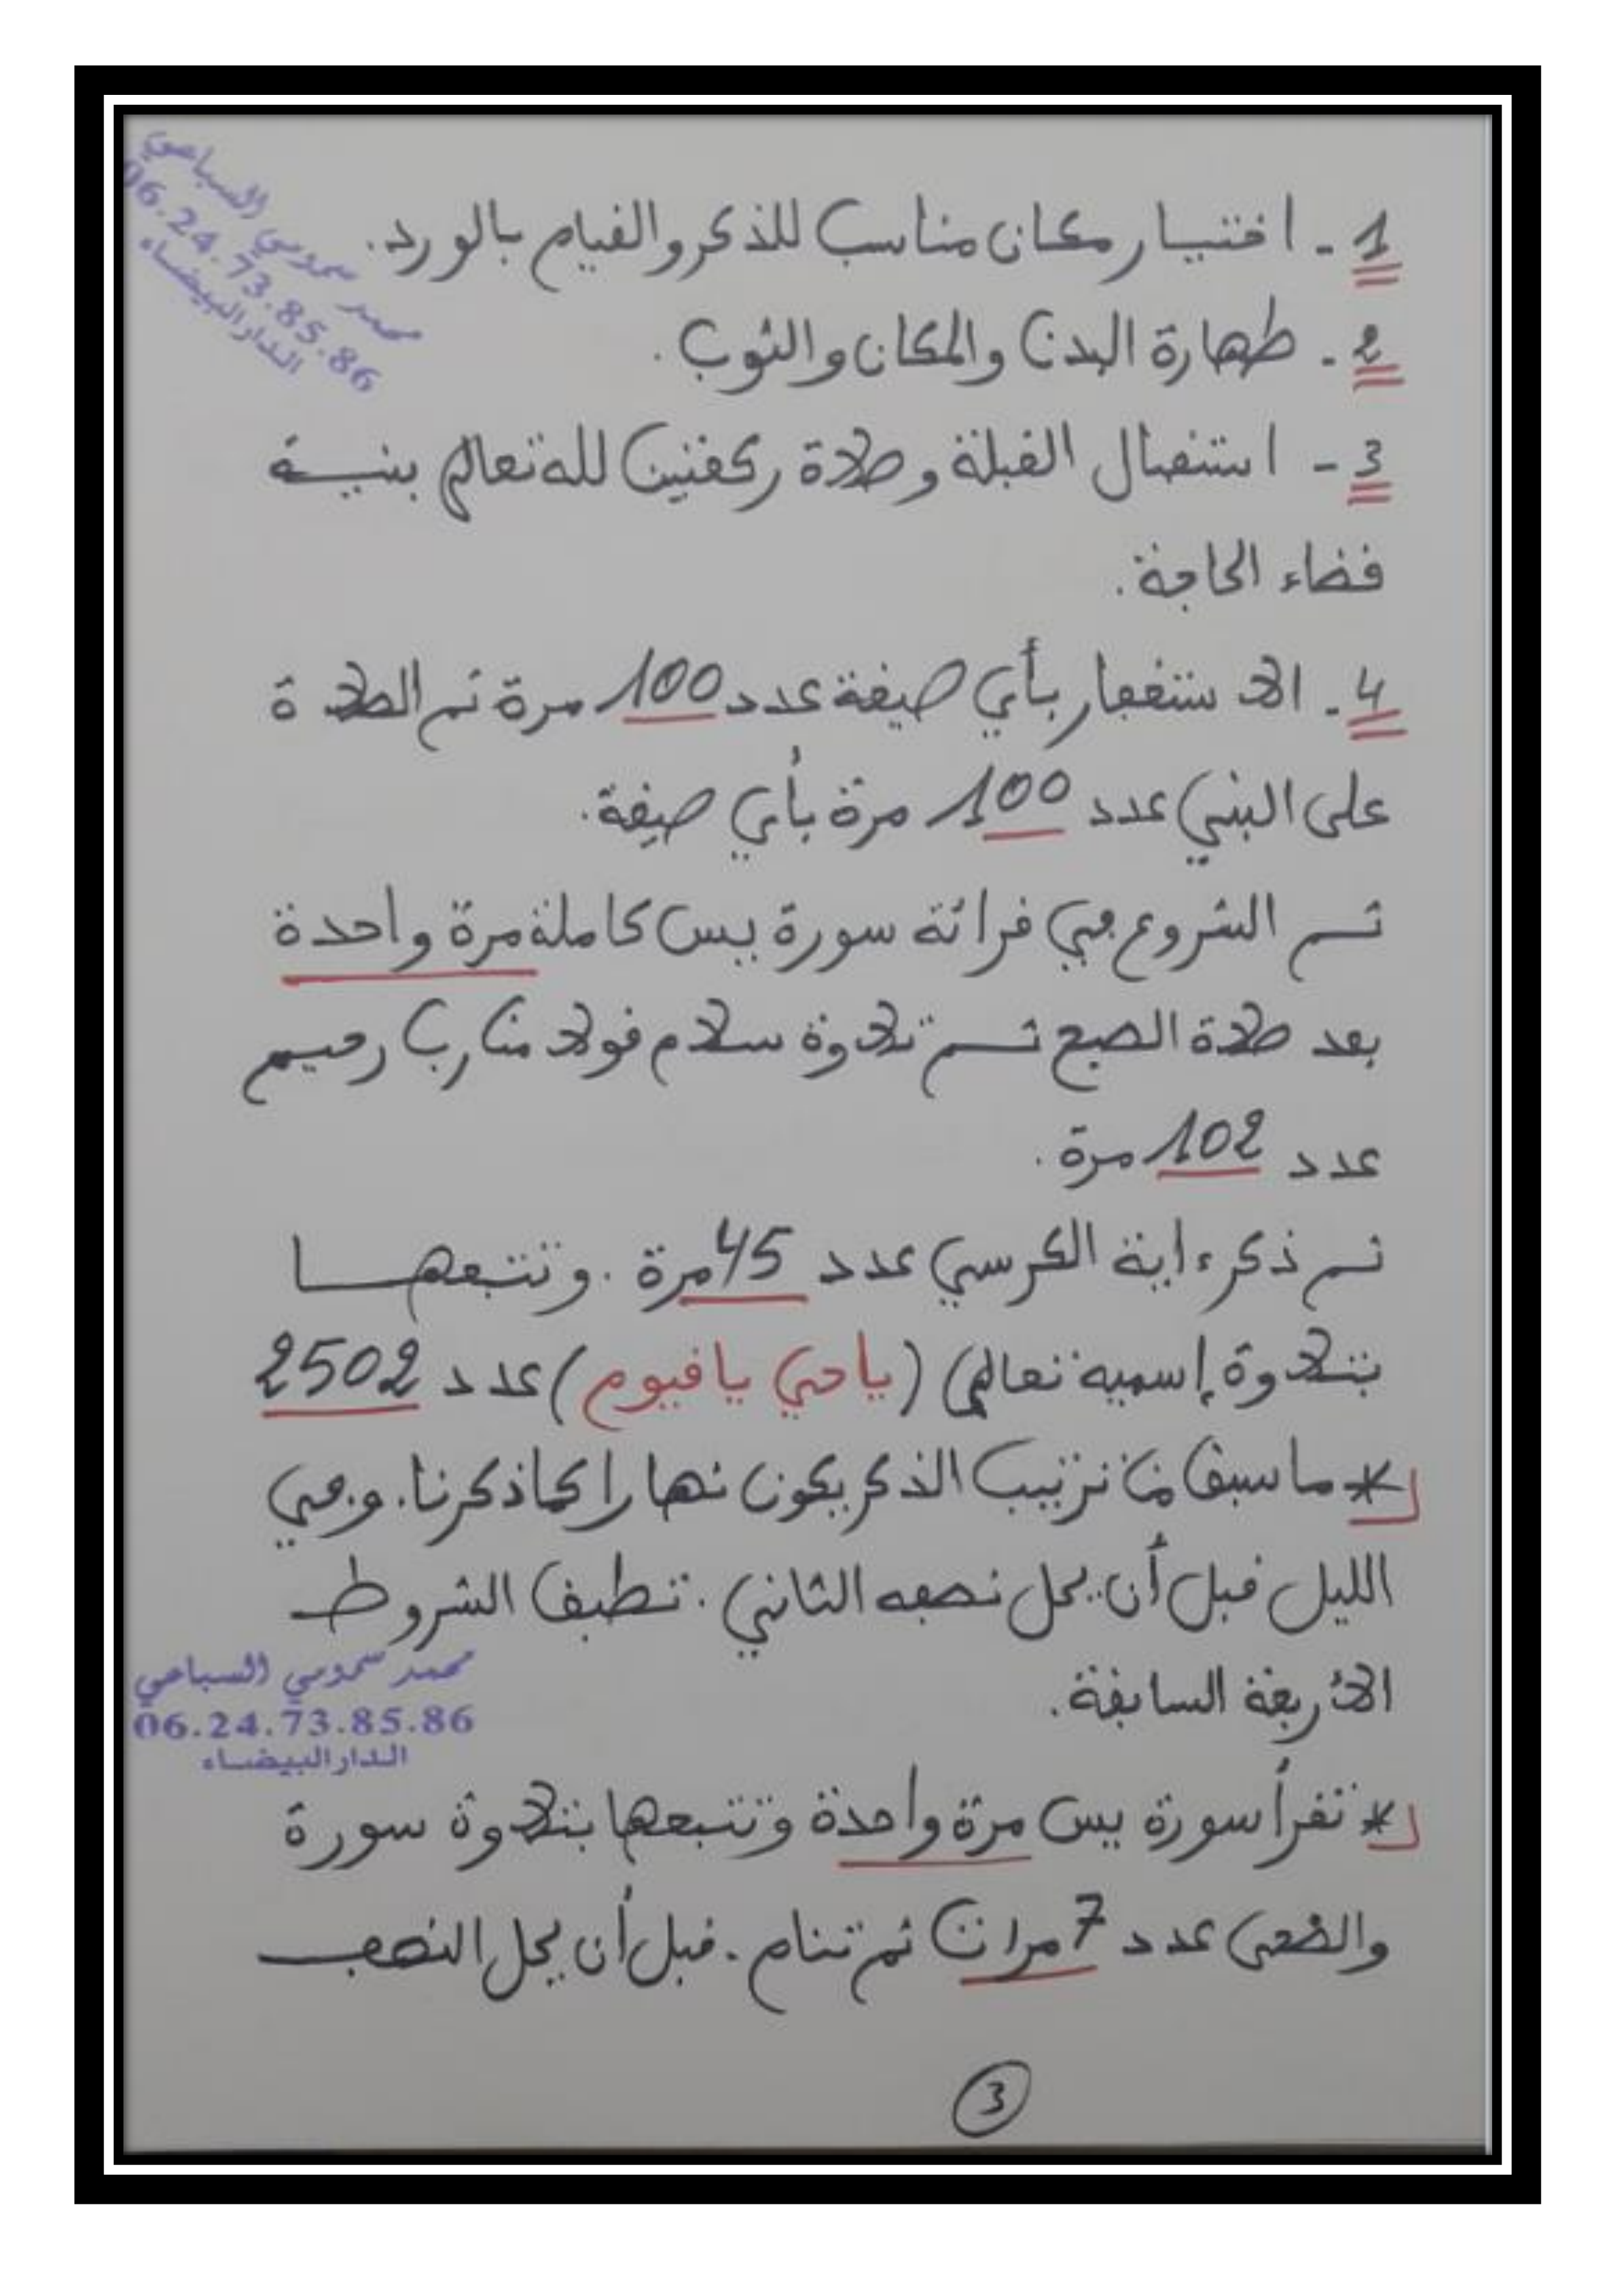 محمد سمومي السباعي
06.24.73.85.86
الدار البيضاء
1 - اختيار مكان مناسب للذكر والقيام بالورد.
2 - طهارة البدن والمكان والثوب.
3 - استقبال القبلة وصلاة ركعتين لله تعالى بنية
قضاء الحاجة.
4 - الاستغفار بأي صيغة عدد 100 مرة ثم الصلاة
على النبي عدد 100 مرة بأي صيغة.
ثم الشروع في قراءة سورة يس كاملة مرة واحدة
بعد صلاة الصبح ثم تلاوة سلام قولا من رب رحيم
عدد 102 مرة.
ثم ذكر ءاية الكرسي عدد 45 مرة. وتتبعها
بتلاوة إسميه تعالى (ياحي ياقيوم) عدد 2502
* ماسبق من ترتيب الذكر يكون نهارا كما ذكرنا. وفي
الليل قبل أن يحل نصفه الثاني: تطبق الشروط
الأربعة السابقة.
محمد سمومي السباعي
06.24.73.85.86
الدار البيضاء
* تقرأ سورة يس مرة واحدة وتتبعها بتلاوة سورة
والضحى عدد 7 مرات ثم تنام. قبل أن يحل النصف
3